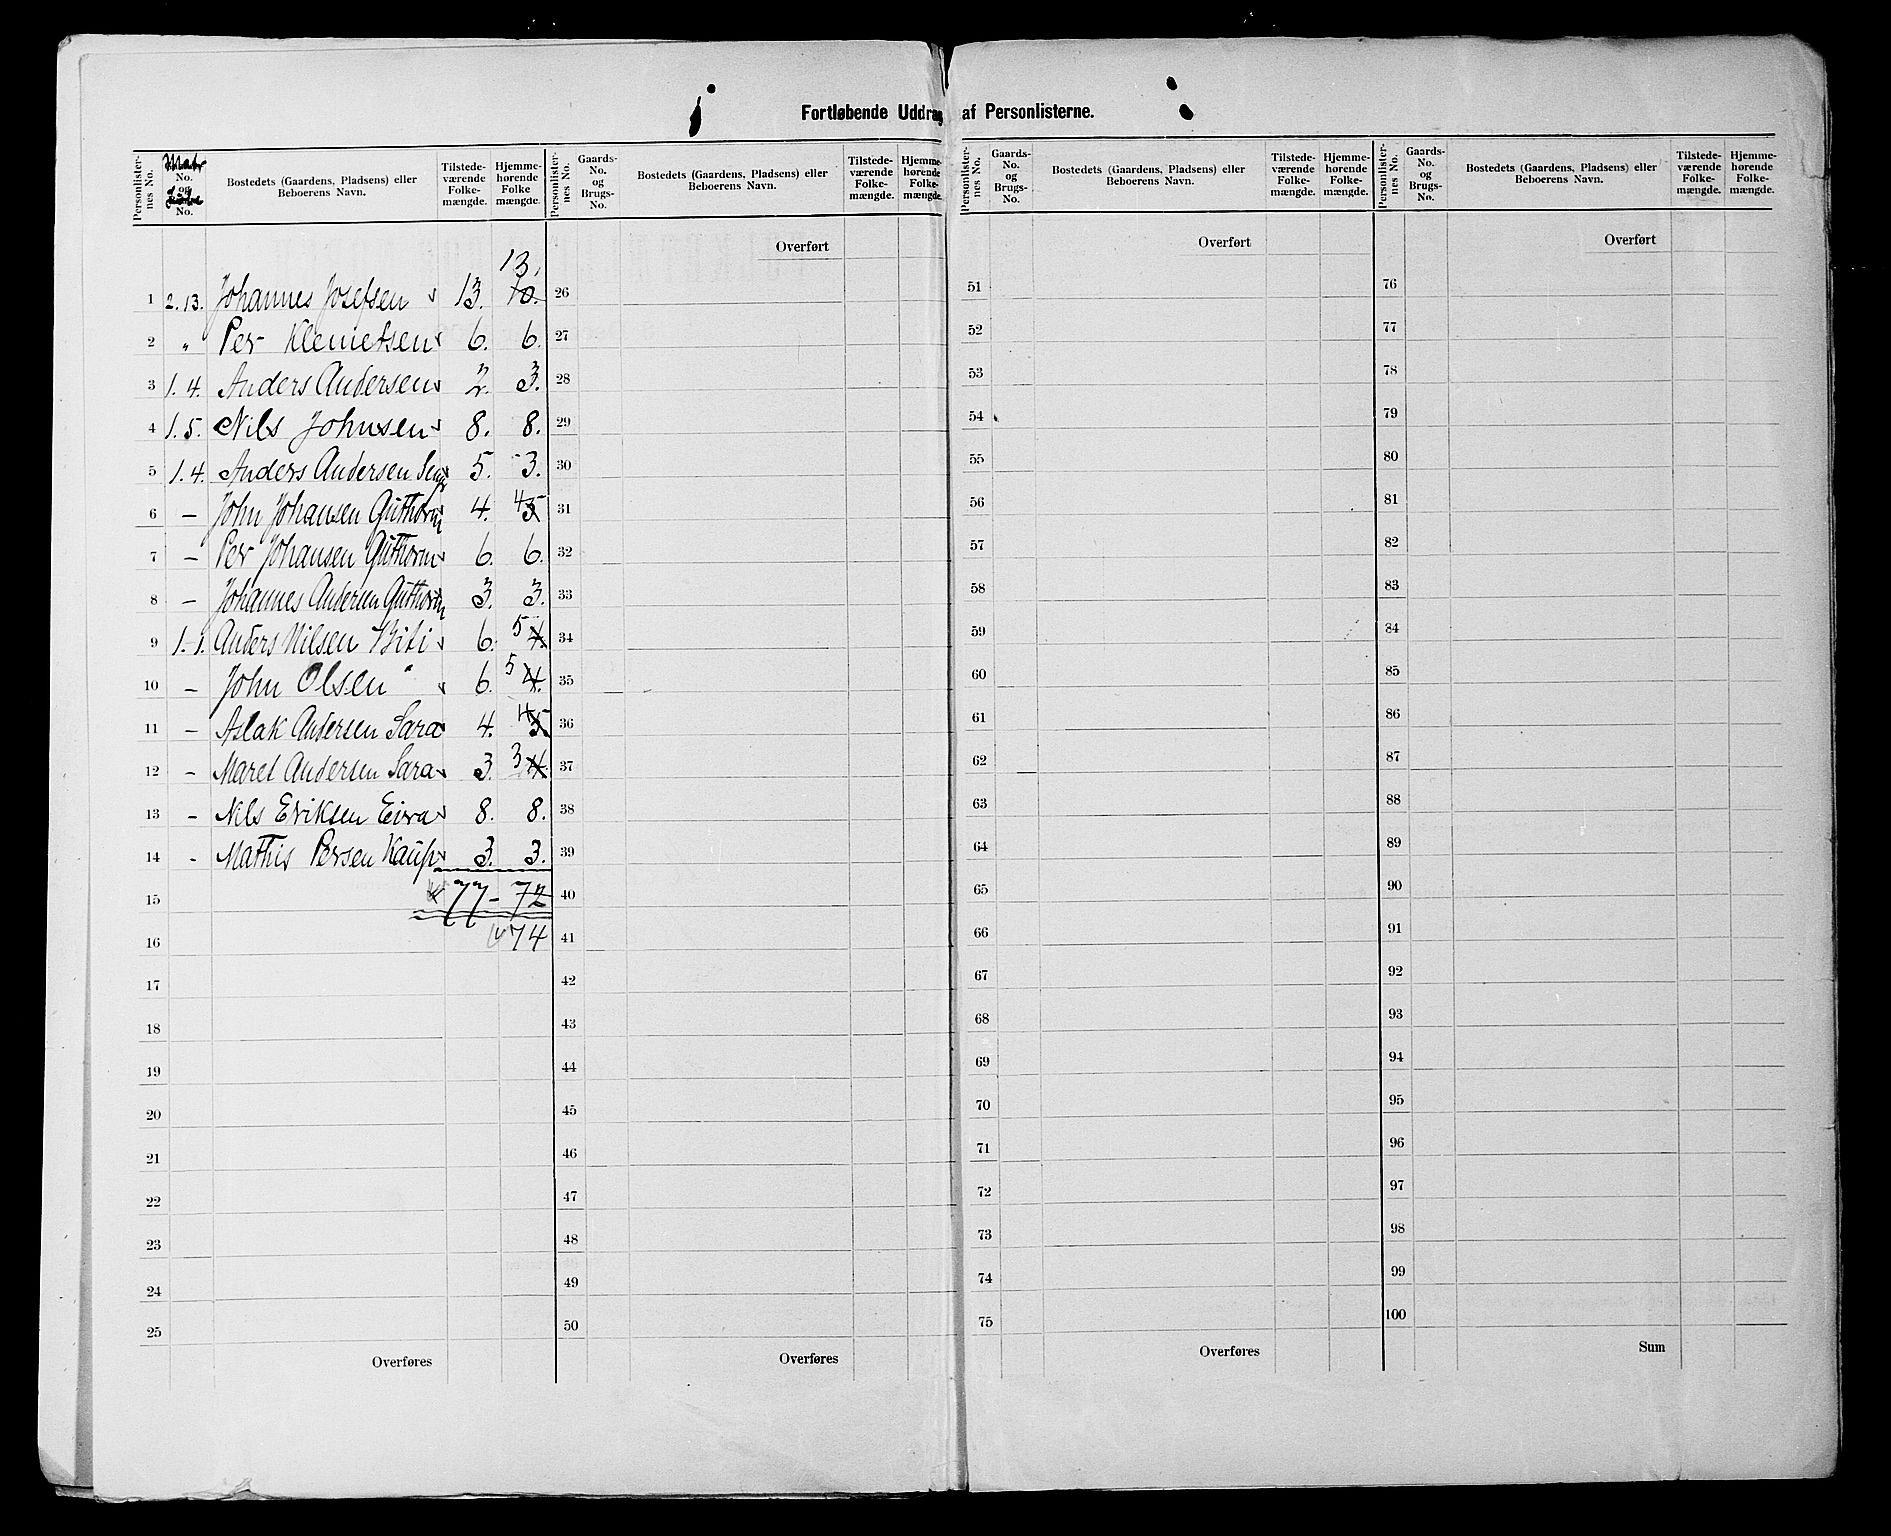 Fortløbende Uddrag af Personlisterne.
Personlister-nes No. Matr No. og No. Bostedets (Gaardens, Pladsens) eller Beboerens Navn. Tilstede-værende Folke-mængde. Hjemme-hørende Folke mængde.
Personlister-nes No. Gaards-No. og Brugs-No. Bostedets (Gaardens, Pladsens) eller Beboerens Navn. Tilstede-værende Folke-mængde. Hjemme-hørende Folke-mængde.
Personlister-nes No. Gaards-No. og Brugs-No. Bostedets (Gaardens, Pladsens) eller Beboerens Navn. Tilstede-værende Folke-mængde. Hjemme-hørende Folke-mængde.
Personlister-nes No. Gaards-No. og Brugs-No. Bostedets (Gaardens, Pladsens) eller Beboerens Navn. Tilstede-værende Folke-mængde. Hjemme-hørende Folke-mængde.
13.
1 2.13. Johannes Josefsen 13. 10.
2 „ Per Klemetsen 6. 6.
3 1.4. Anders Andersen 2. 3.
4 1.5. Nils Johnsen 8. 8.
5 1.4. Anders Andersen 5. 3.
6 – John Johansen Guttorm 4. 4 5
7 – Per Johansen Guttorm 6. 6.
8 – Johannes Andersen Guttorm 3. 3.
9 1.1. Anders Nilsen Biti 6. 5 4.
10 – John Olsen " 6. 5 4.
11 – Aslak Andersen Sara 4. 4 5.
12 – Maret Andersen Sara 3. 3 4.
13 – Nils Eriksen Eira 8. 8.
14 - Mathis Persen Kaup 3. 3.
15 77 – 72
16 74
17
18
19
20
21
22
23
24
25
Overføres
Overført
26
27
28
29
30
31
32
33
34
35
36
37
38
39
40
41
42
43
44
45
46
47
48
49
50
Overføres
Overført
51
52
53
54
55
56
57
58
59
60
61
62
63
64
65
66
67
68
69
70
71
72
73
74
75
Overføres
Overført
76
77
78
79
80
81
82
83
84
85
86
87
88
89
90
91
92
93
94
95
96
97
98
99
100
Sum